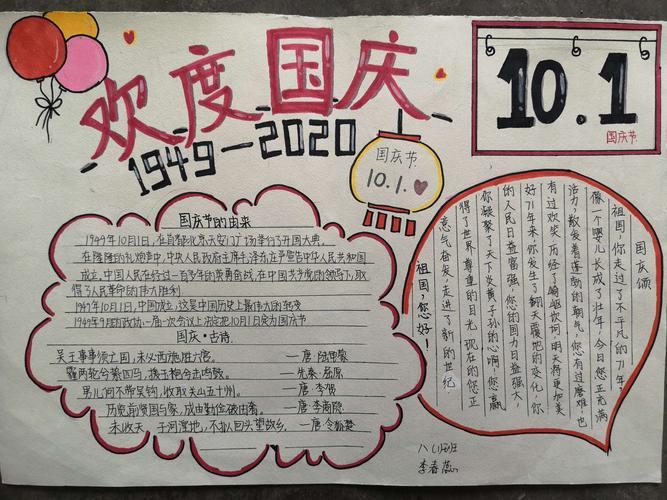 欢度国庆
1949—2020
10.1
国庆节
国庆节
10.1.
国庆节的由来
1949年10月1日,在首都北京天安门广场举行了开国大典,
在隆隆的礼炮声中,中央人民政府主席毛泽东庄严宣告中华人民共和国
成立,中国人民在经过一百多年的英勇奋战,在中国共产党的领导下,取
得了人民革命的伟大胜利.
1949年10月1日,中国成立,这是中国历史上最伟大的转变
国庆·古诗
吴王事事须亡国,未必西施胜六宫. —唐·陆龟蒙
霾两轮兮絷四马,援玉枹兮击鸣鼓 —先秦·屈原
男儿何不带吴钩,收取关山五十州. —唐·李贺
历览前贤国与家,成由勤俭破由奢. —唐·李商隐
未收天子河湟地,不拟回头望故乡. —唐·令狐楚
国庆颂
祖国,你走过了不平凡的71年,
像一个婴儿长成了壮年,今日您正充满
活力,散发着蓬勃的朝气,您有过磨难也
有过欢笑,历经了崎岖坎坷明天将更加美
好71年来你发生了翻天覆地的变化,你
的人民日益富强,您的国力日益强大,
你凝聚了天下炎黄子孙的心啊,您赢
得了世界尊重的目光,现在的您正
意气奋发,走进了新的世纪
祖国,您好!
八(1)班
李春蕊